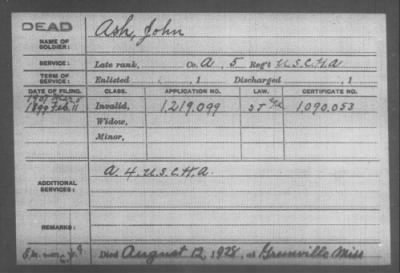 DEAD
NAME OF SOLDIER: Ash, John
SERVICE: Late rank, Co. A, 5 Reg't U.S.C.H.A
TERM OF SERVICE: Enlisted , 1 Discharged , 1
DATE OF FILING. CLASS. APPLICATION NO. LAW. CERTIFICATE NO.
1901
1899 Feb. 11 Invalid, 1,219,099 1,090,053
Widow,
Minor,
ADDITIONAL SERVICES: A. 4. U.S.C.H.A.
REMARKS:
Died August 12, 1928, at Greenville Miss